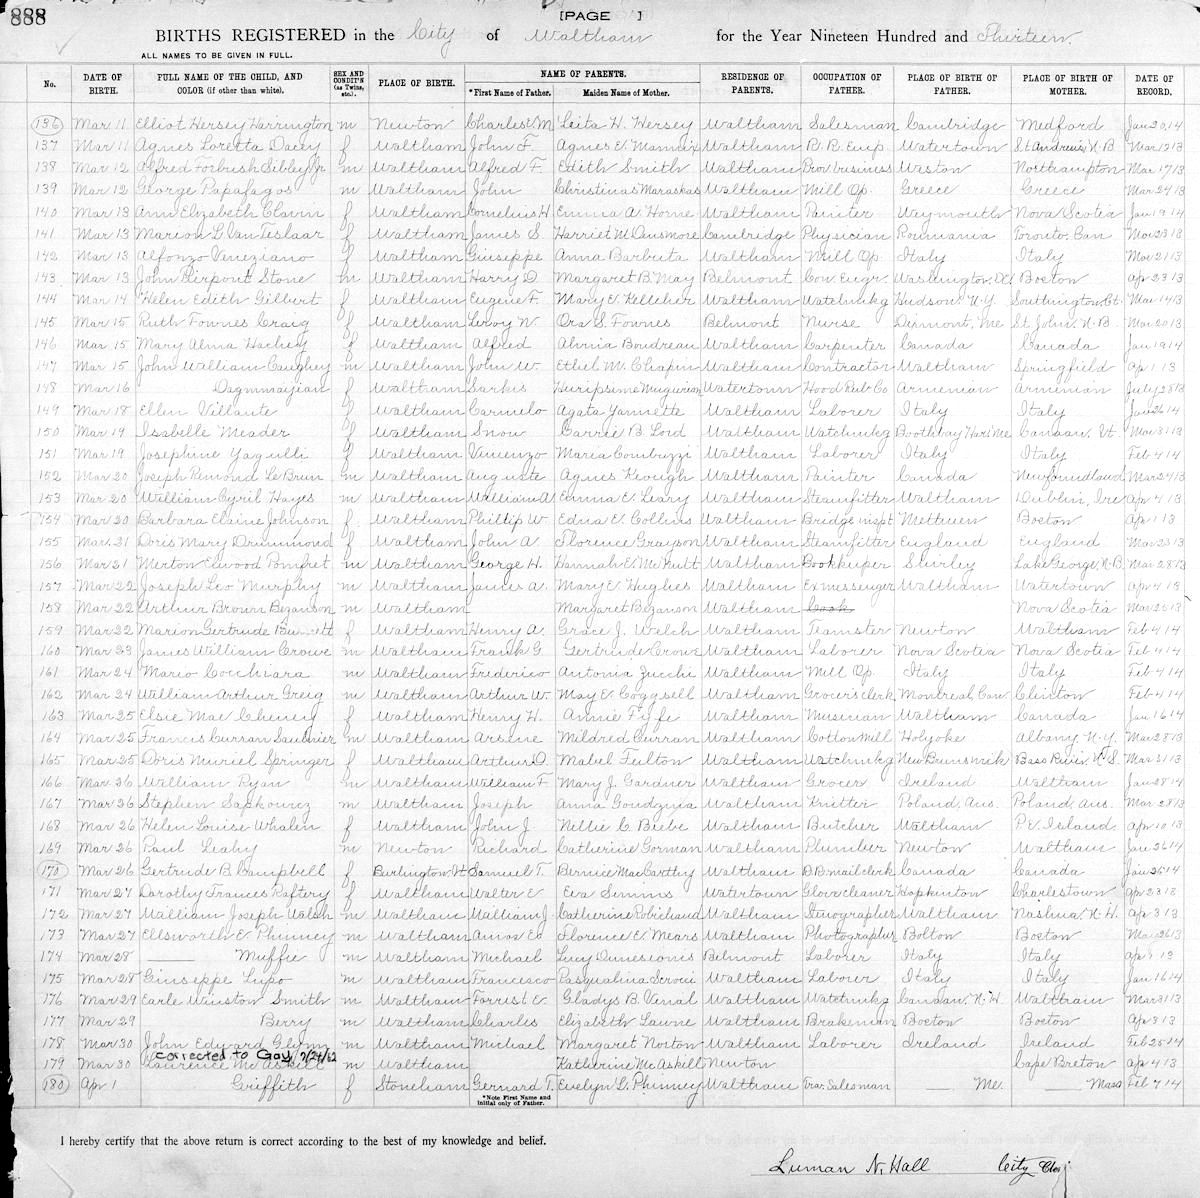 888
[PAGE ]
BIRTHS REGISTERED in the City of Waltham for the Year Nineteen Hundred and Thirteen.
ALL NAMES TO BE GIVEN IN FULL.
No. DATE OF BIRTH. FULL NAME OF THE CHILD, AND COLOR (if other than white). SEX AND CONDIT'N (as Twins, etc.). PLACE OF BIRTH. NAME OF PARENTS. *First Name of Father. Maiden Name of Mother. RESIDENCE OF PARENTS. OCCUPATION OF FATHER. PLACE OF BIRTH OF FATHER. PLACE OF BIRTH OF MOTHER. DATE OF RECORD.
136 Mar 11 Elliot Hersey Harrington m Newton Charles M Leita H. Hersey Waltham Salesman Cambridge Medford Jan 20 14
137 Mar 11 Agnes Loretta Dacey f Waltham John F. Agnes E. Mannix Waltham R.R. Emp. Watertown St Andrews N.B Mar 12 13
138 Mar 12 Alfred Forbush Sibley Jr m Waltham Alfred F. Edith Smith Waltham Prov business Weston Northampton Mar 17 13
139 Mar 12 George Papafagos m Waltham John Christina Maraskas Waltham Mill Op. Greece Greece Mar 24 13
140 Mar 13 Ann Elizabeth Clavin f Waltham Cornelius H. Emma A. Horne Waltham Painter Weymouth Nova Scotia Jan 19 14
141 Mar 13 Marion L Van Teslaar f Waltham James S. Harriet M Dinsmore Cambridge Physician Roumania Toronto, Can Mar 23 13
142 Mar 13 Alfonzo Veneziano f Waltham Giuseppe Anna Barbuta Waltham Mill Op Italy Italy Mar 21 13
143 Mar 13 John Pierpont Stone m Waltham Harry D. Margaret B. May Belmont Con. Engr Washington, DC Boston Apr 23 13
144 Mar 14 Helen Edith Gilbert f Waltham Eugene F. Mary E. Kelleher Waltham Watchmkg Hudson N.Y. Southington, Ct. Mar 14 13
145 Mar 15 Ruth Fownes Craig f Waltham Leroy W. Ora S. Fownes Belmont Nurse Dixmont, Me St John, N.B. Mar 20 13
146 Mar 15 Mary Alma Hachey f Waltham Alfred Alvina Boudreau Waltham Carpenter Canada Canada Jan 19 14
147 Mar 15 John William Caughey m Waltham John W. Ethel M. Chapin Waltham Contractor Waltham Springfield Ap 1 13
148 Mar 16 Dagmmayjian f Waltham Sarkis Huripsime Mugurian Watertown Hood Rub Co Armenian Armenian July 28 13
149 Mar 18 Ellen Villante f Waltham Carmelo Agata Yannette Waltham Laborer Italy Italy Jan 26 14
150 Mar 19 Isabelle Meader f Waltham Snow Carrie B. Lord Waltham Watchmkg Boothbay Har. Me Canaan, Vt. Mar 31 13
151 Mar 19 Josephine Yagulli f Waltham Vincenzo Maria Combuzzi Waltham Laborer Italy Italy Feb 4 14
152 Mar 20 Joseph Remond LeBrun m Waltham Auguste Agnes Keough Waltham Painter Canada Newfoundland Mar 24 13
153 Mar 20 William Cyril Hayes m Waltham William A. Emma E. Leary Waltham Steamfitter Waltham Dublin, Ire Apr 4 13
154 Mar 20 Barbara Elaine Johnson f Waltham Phillip W. Edna E. Collins Waltham Bridge inspt Methuen Boston Apr 1 13
155 Mar. 21 Doris Mary Drummond f Waltham John A. Florence Grayson Waltham Steamfitter England England Mar 25 13
156 Mar 21 Merton Elwood Pomfret m Waltham George H. Hannah E. McNutt Waltham Bookkeeper Shirley Lake George, N.B. Mar 28 13
157 Mar 22 Joseph Leo Murphy m Waltham James A. Mary E. Hughes Waltham Ex messenger Waltham Watertown Apr 4 13
158 Mar 22 Arthur Brown Bezanson m Waltham Margaret Bezanson Waltham Cook Nova Scotia Mar 26 13
159 Mar 22 Marion Gertrude Burnett f Waltham Henry A. Grace J. Welch Waltham Teamster Newton Waltham Feb 4 14
160 Mar 23 James William Crowe m Waltham Frank G Gertrude Crowe Waltham Laborer Nova Scotia Nova Scotia Feb 4 14
161 Mar 24 Mario Cocchiara m Waltham Frederico Antonia Zucchi Waltham Mill Op. Italy Italy Feb 4 14
162 Mar 24 William Arthur Greig m Waltham Arthur W. May E. Coggsell Waltham Grocers clerk Montreal, Can. Clinton Feb 4 14
163 Mar 25 Elsie Mae Cheney f Waltham Henry H. Annie Fife Waltham Musician Waltham Canada Jan 16 14
164 Mar 25 Francis Curran Saulnier m Waltham Arsene Mildred Curran Waltham Cotton Mill Holyoke Albany N.Y. Mar 28 13
165 Mar 25 Doris Muriel Springer f Waltham Arthur O. Mabel Fulton Waltham Watchmkg New Brunswik Bass River, N.S. Mar 31 13
166 Mar 26 William Ryan m Waltham William F. Mary J. Gardner Waltham Grocer Ireland Waltham Jan 28 14
167 Mar 26 Stephen Sapkowicz m Waltham Joseph Anna Goudznia Waltham Knitter Poland, Aus. Poland, Aus. Mar 28 13
168 Mar 26 Helen Louise Whalen f Waltham John J. Nellie C Beebe Waltham Butcher Waltham P.E. Island Apr 10 13
169 Mar 26 Paul Leahy m Newton Richard Catherine Gorman Waltham Plumber Newton Waltham Jan 26 14
170 Mar 26 Gertrude B. Campbell f Burlington, Vt Samuel T. Bernice MacCarthy Waltham R.R. mail clerk Canada Canada Jan 26 14
171 Mar 27 Dorothy Frances Raftery f Waltham Walter E Eva Simms Watertown Glove cleaner Hopkinton Charlestown Apr 23 13
172 Mar 27 William Joseph Walsh m Waltham William J. Catherine Robichaud Waltham Stenographer Waltham Nashua, N.H. Apr 3 13
173 Mar 27 Ellsworth E Phinney m Waltham Amos E. Florence E. Mears Waltham Photographer Bolton Boston Mar 26 13
174 Mar 28 Muffie m Waltham Michael Lucy Belmont Laborer Italy Italy Apr 1 13
175 Mar 28 Giuseppe Lupo m Waltham Francisco Pasqualina Scroci Waltham Laborer Italy Italy Jan 16 14
176 Mar 29 Earle Winston Smith m Waltham Forrest E Gladys B. Venal Waltham Watchmkg Canaan, N.H. Waltham Mar 31 13
177 Mar 29 Berry m Waltham Charles Elizabeth Laune Waltham Brakeman Boston Boston Apr 3 13
178 Mar 30 John Edward Glynn m Waltham Michael Margaret Norton Waltham Laborer Ireland Ireland Feb 25 14
corrected to Gay, 9/24/62
179 Mar 30 Laurence McAskell m Waltham Katherine McAskell Newton Cape Breton Apr 4 13
180 Apr 1 Griffith f Stoneham Gernard T. Evelyn G. Phinney Waltham Trav. Salesman Me. Mass Feb 7 14
*Note First Name and initial only of Father.
I hereby certify that the above return is correct according to the best of my knowledge and belief.
Luman N. Hall City Clerk